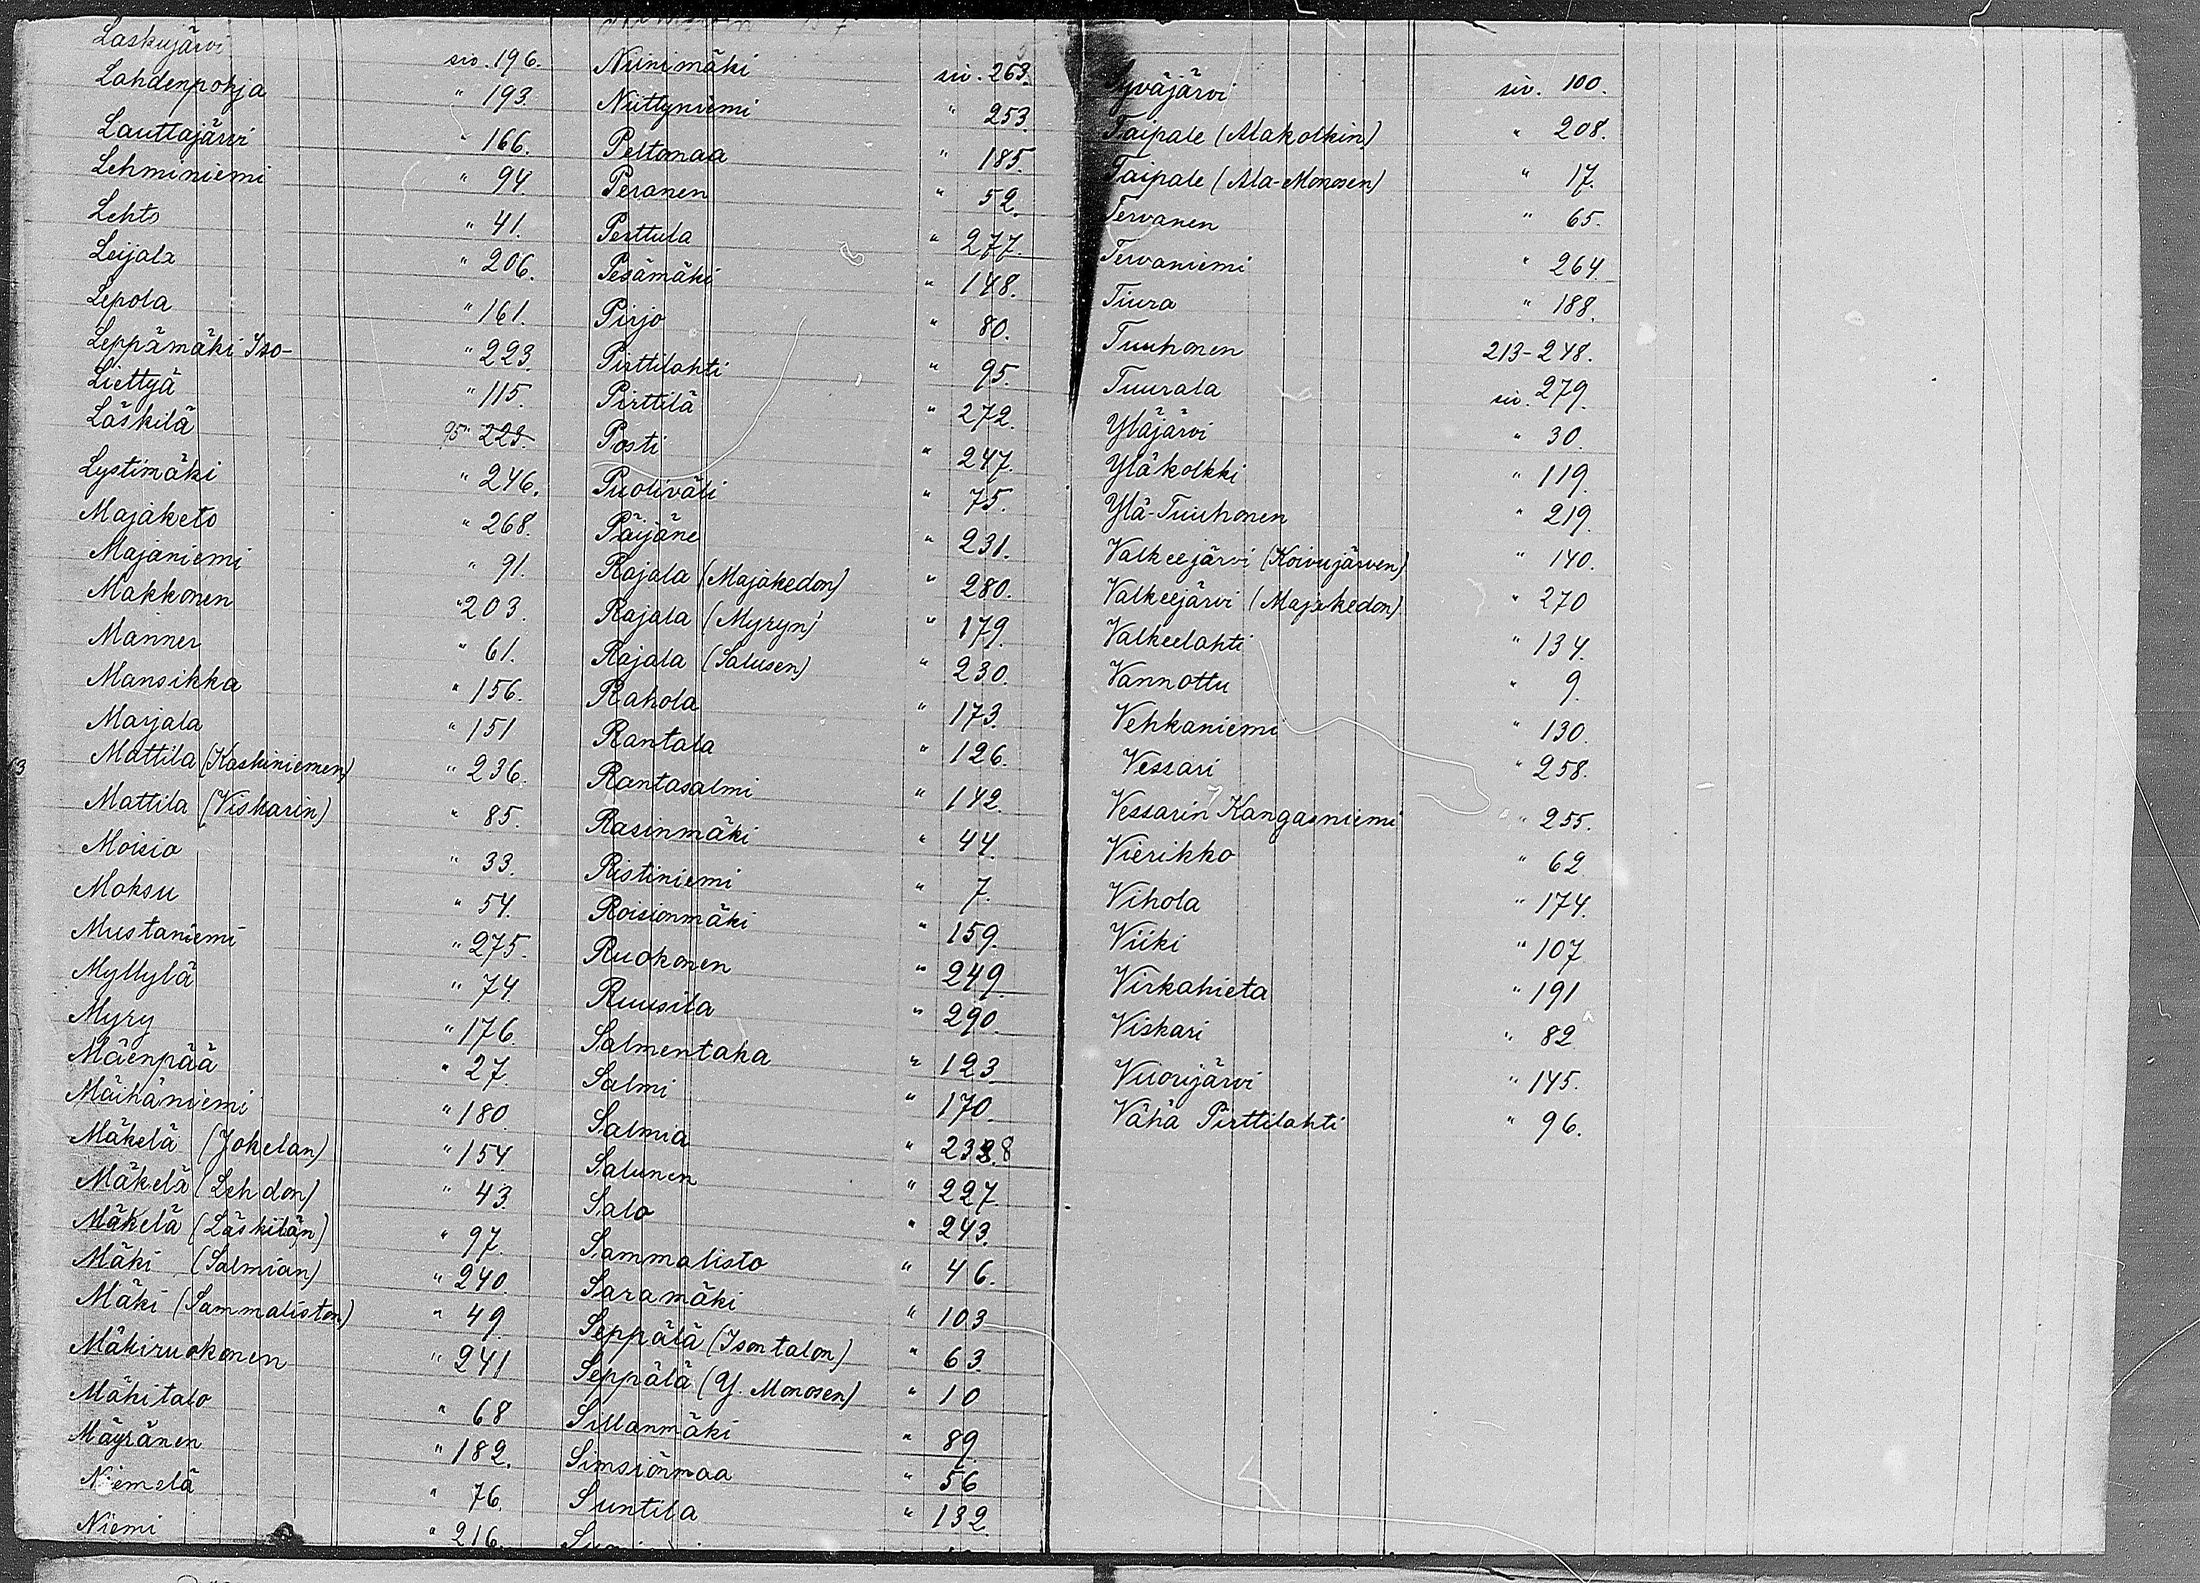 Laskujärvi siv. 196.
Lahdenpohja " 193.
Lauttajärvi " 166.
Lehminiemi " 94.
Lehto " 41.
Leijala " 206.
Lepola " 161.
Leppämäki Iso- " 223.
Liettyä " 115.
Läskilä 95" 223.
Lystimäki " 246.
Majaketo " 268.
Majaniemi " 91.
Makkonen " 203.
Manner " 61.
Mansikka " 156.
Marjala " 151
Mattila (Kaskiniemen) " 236.
Mattila (Viskarin) " 85.
Moisio " 33.
Moksu " 54.
Mustaniemi " 275.
Myllylä " 74.
Myry " 176
Mäenpää " 27.
Mäihäniemi " 180.
Mäkelä (Jokelan) " 154
Mäkelä (Lehdon) " 43.
Mäkelä (Läskilän) " 97.
Mäki (Salmian) " 240.
Mäki (Sammaliston) " 49.
Mäkiruokonen " 241
Mäkitalo " 68
Mäyränen " 182.
Niemelä " 76.
Niemi " 216.
Niinimäki siv. 263.
Niittyniemi " 253.
Peltomaa " 185.
Peranen " 52.
Perttula " 277.
Pesämäki " 148.
Pirjo " 80.
Pirttilahti " 95.
Pirttilä " 272.
Posti " 247.
Puoliväli " 75.
Päijäne " 231.
Rajala (Majakedon) " 280.
Rajala (Myryn) " 179.
Rajala (Salusen) " 230.
Rahola " 173.
Rantala " 126.
Rantasalmi " 142.
Rasinmäki " 44.
Ristiniemi " 7.
Roisionmäki " 159.
Ruokonen " 249.
Ruusila " 290.
Salmentaka " 123
Salmi " 170.
Salmia " 238.8
Salunen " 227.
Salo " 243.
Sammalisto " 46.
Saramäki " 103
Seppälä (Isontalon) " 63.
Seppälä (Y. Monosen) " 10
Sillanmäki " 89.
Simsiönmaa " 56
Suntila " 132.
Syväjärvi siv. 100.
Taipale (Alakolkin) " 208.
Taipale (Ala-Monosen) " 17.
Tervanen " 65.
Tervaniemi " 264.
Tiura " 188.
Tuuhonen 213-248.
Tuurala siv. 279.
Yläjärvi " 30.
Yläkolkki " 119.
Ylä-Tuuhonen " 219.
Valkeejärvi (Koivujärven) " 140.
Valkeejärvi (Majakedon) " 270
Valkeelahti " 134.
Vannottu " 9.
Vehkaniemi " 130.
Vessari " 258.
Vessarin Kangasniemi " 255.
Vierikko " 62.
Vihola " 174.
Viiki " 107
Virkahieta " 191
Viskari " 82
Vuorijärvi " 145.
Vähä Pirttilahti " 96.